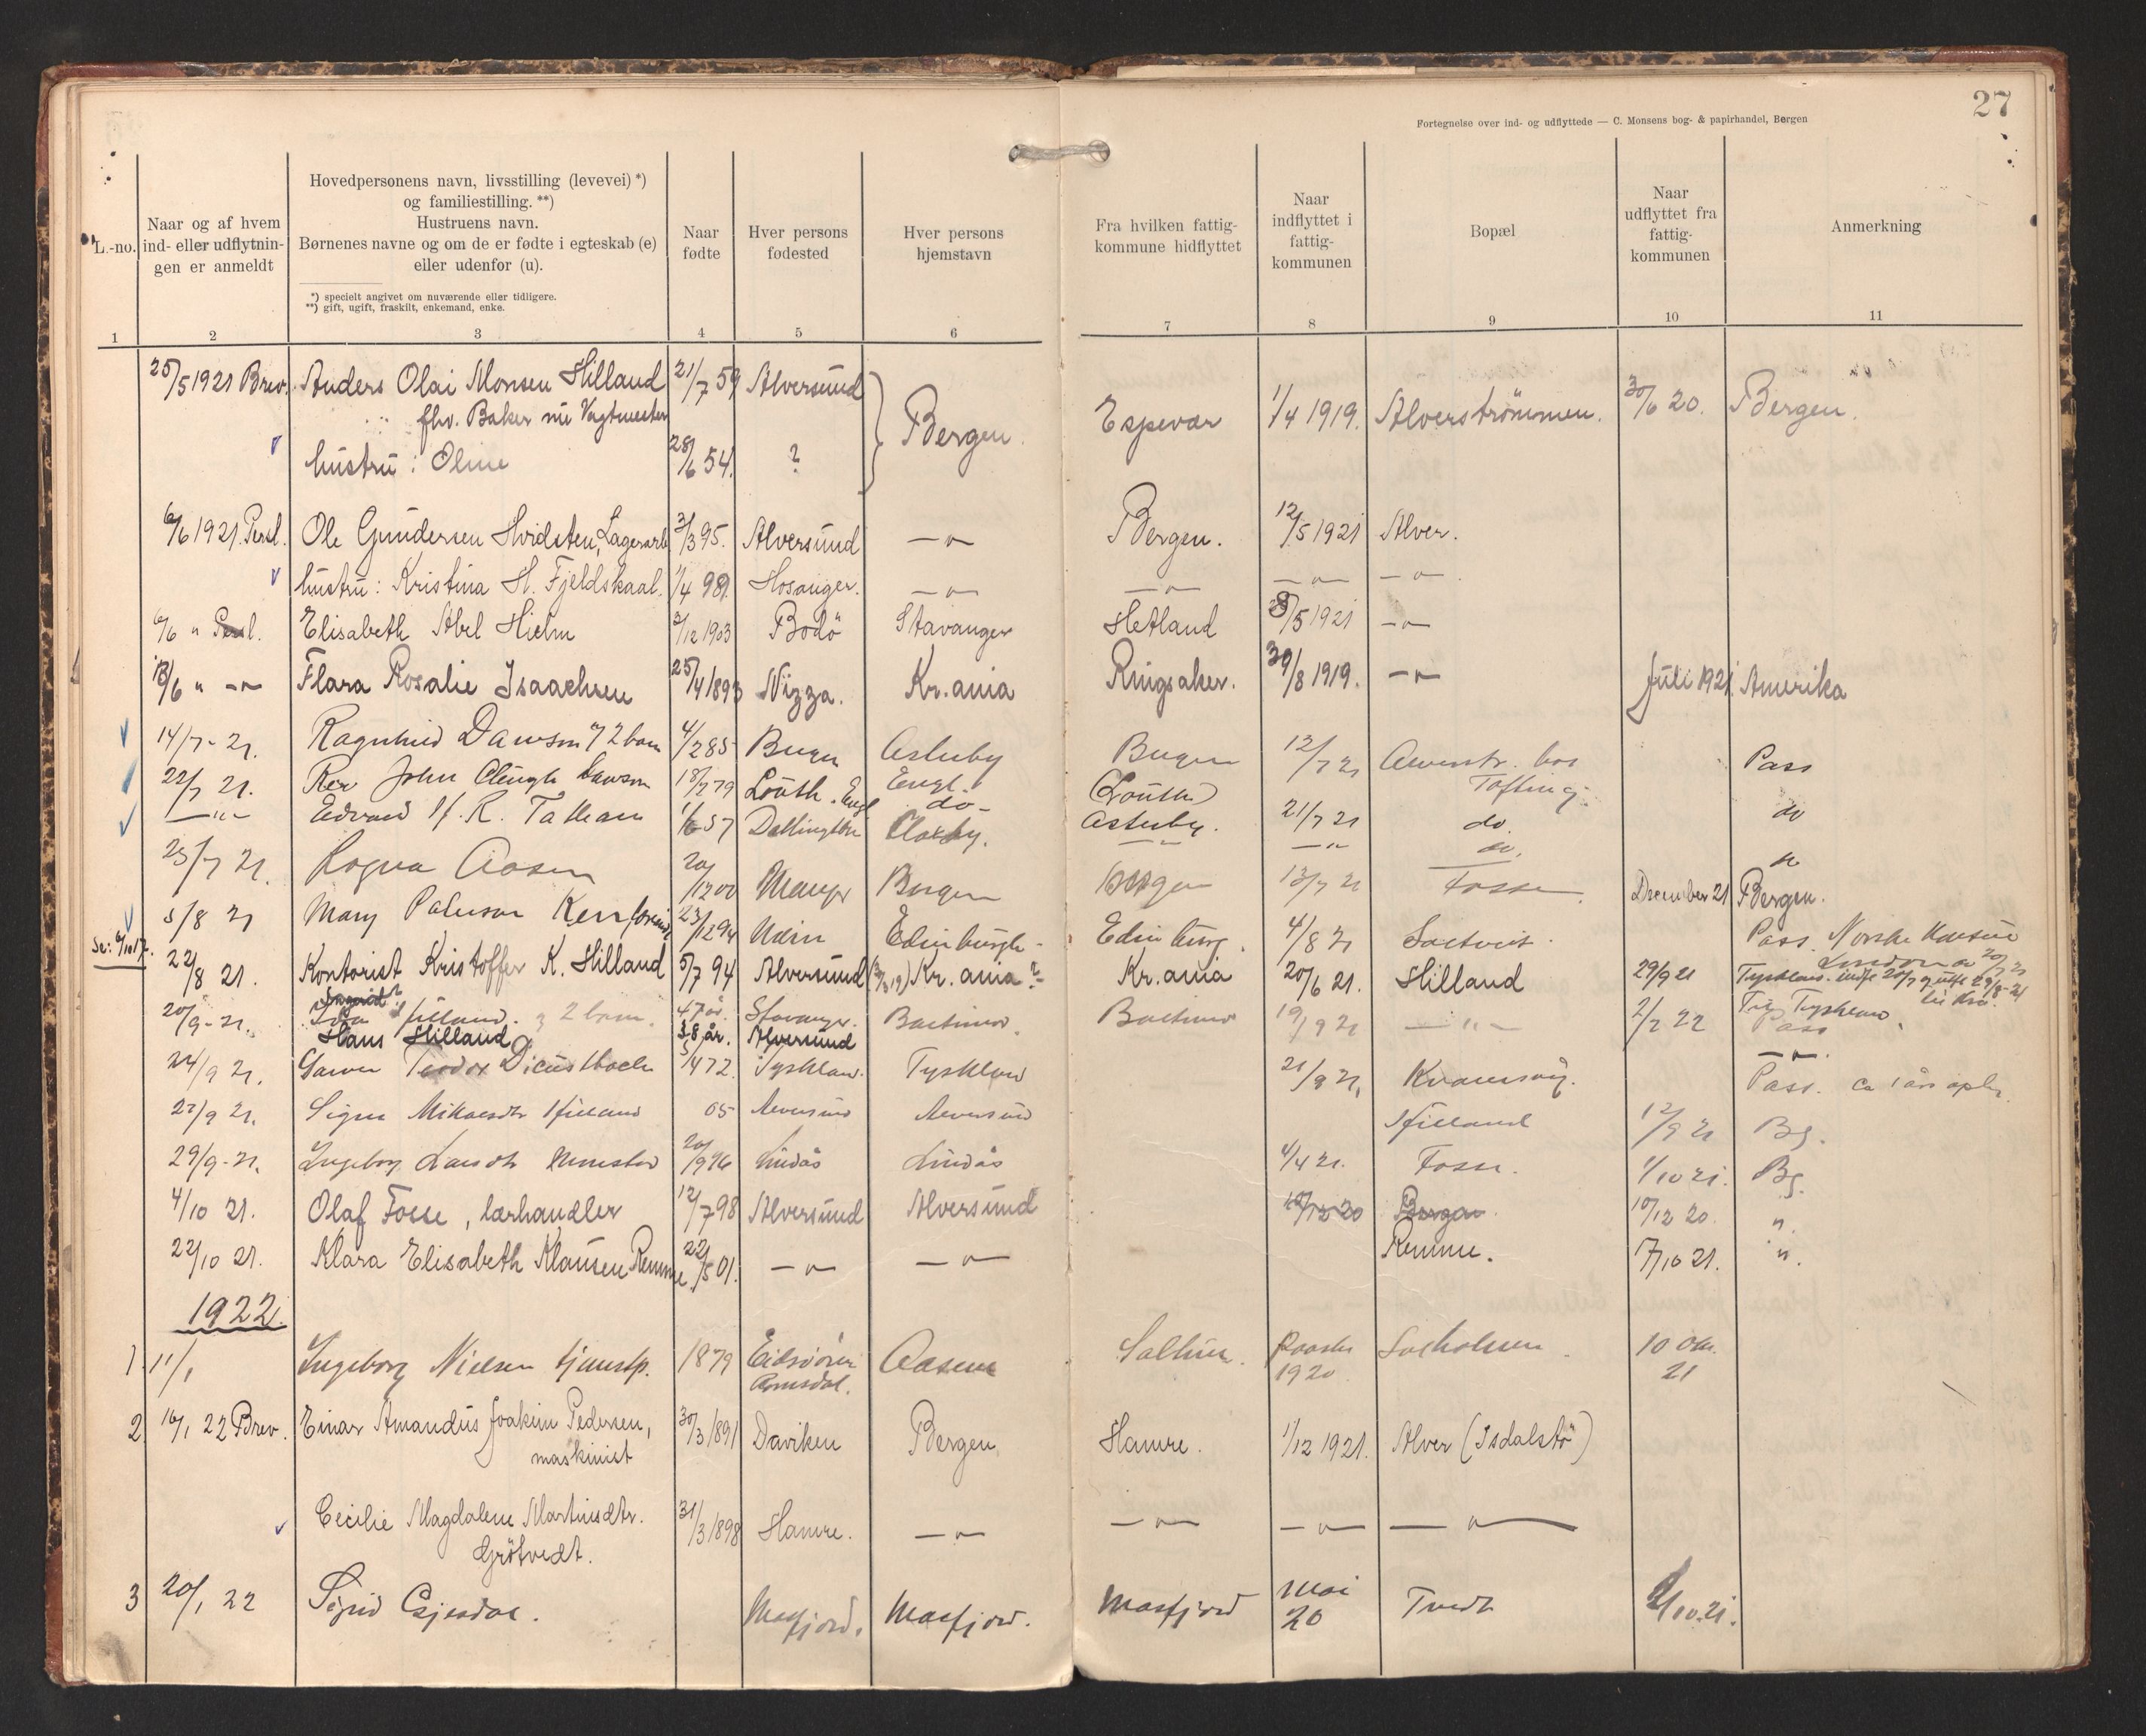 27
Fortegnelse over ind- og udflyttede — C. Monsens bog- & papirhandel, Bergen
L.-no.
Naar og af hvem
ind- eller udflytnin-
gen er anmeldt
Hovedpersonens navn, livsstilling (levevei) *)
og familiestilling. **)
Hustruens navn.
Børnenes navne og om de er fødte i egteskab (e)
eller udenfor (u).
*) specielt angivet om nuværende eller tidligere.
**) gift, ugift, fraskilt, enkemand, enke.
Naar
fødte
Hver persons
fødested
Hver persons
hjemstavn
Fra hvilken fattig-
kommune hidflyttet
Naar
indflyttet i
fattig-
kommunen
Bopæl
Naar
udflyttet fra
fattig-
kommunen
Anmerkning
1 2 3 4 5 6 7 8 9 10 11
25/5 1921 Brev. Anders Olai Monsen Hilland 21/7 59 Alversund } Bergen. Espevær 1/4 1919. Alverströmmen. 30/6 20. Bergen.
fhv. Baker nu Vagtmester
hustru: Oline 28/6 54. ?
6/6 1921. Persl. Ole Gundersen Hvidsten, Lagerarb. 3/3 95. Alversund —"— Bergen. 12/5 1921 Alver.
hustru: Kristina H. Fjeldskaal. 1/4 98. Hosanger. —"— —"— —"— —"—
6/6 " Persl. Elisabeth Abel Hielm 2/12 1903 Bodö Stavanger Hetland /5 1921 —"—
18/6 " —"— Flara Rosalie Isaachsen 25/4 1893 Nizza. Kr.ania Ringsaker. 30/8 1919. —"— Juli 1921. Amerika
14/7 - 21. Ragnhild Dawson & 2 barn 4/2 85 Bergen Asterby Bergen 12/7 21 Alverstr. hos Pass
22/7 21. Rev John Clough Dawson 18/7 79 Louth. Engl Engl. (Louth) Tofting
—"— Edward H. R. Tatham 1/6 57 Dallington do - Claxby. Asterby. 21/7 21 do. do
—"— —"— do. do
25/7 21. Rogna Aasen 20/12 00 Manger Bergen Bergen 13/7 21 Fosse. December 21 Bergen.
5/8 21 Mary Paterson Kerr 23/12 94 Edinburgh - Edinburg. 4/8 21 Soltveit. Pass. Norske Konsul
London
Se: 6/10 17.
22/8 21. Kontorist Kristoffer K. Hilland 5/7 94 Alversund Kr. ania? Kr.ania 20/6 21. Hilland 29/9 21 Tyskland. indfl 20/7 utfl 29/8 - 21
til Kra.
20/9 - 21. Ingrid? Hilland. & 2 barn. 47 år. Stavanger. 19/9 21 —"— 2/2 22 Pass
Hans Hilland 38 år. Alversund —"—.
24/9 21. Teodor 5/4 72. Tyskland. Tyskland 21/9 21, Kvamsvåg. Pass. ca 1 års oph.
27/9 21. Signe Mikalsdtr Hilland 05 Alversund Alversund Hilland 12/9 21 Bg.
29/9 - 21. Ingeborg Larsdtr 20/9 96 Lindås Lindås 4/4 21. Fosse. 1/10 21. Bg.
4/10 21. Olaf Fosse, lærhandler 12/7 98 Alversund Alversund 10/12 20 Bergen. 10/12 20. ".
22/10 21. Klara Elisabeth Klausen Remme 22/5 01. —"— —"— Remme. 7/10 21. ".
1922.
1. 11/1 Ingeborg Nielsen tjenestp. 1879 Eidsvören Aasene Salhus. Paaske Soltholmen. 10 Okt.
Romsdal. 1920 21
2. 16/1 22 Brev. Einar Amandus Joakim Pedersen, 30/3 1891 Daviken Bergen Hamre. 1/12 1921. Alver (Isdalstö)
maskinist
Cecilie Magdalene Martinsdtr. 31/3 1898 Hamre. —"— —"— —"— —"—
Grötvedt.
3 20/1 22 Sigrid Masfjord. Masfjord. Masfjord Mai Tvedt /10.21.
20